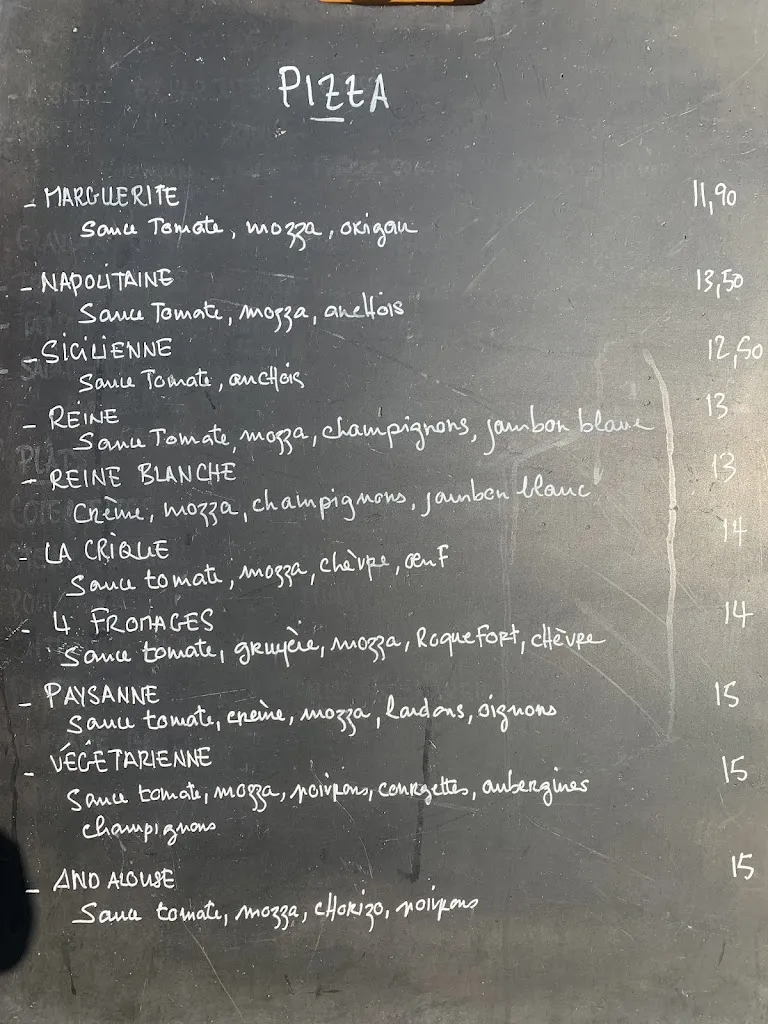 PIZZA
- MARGUERITE 11,90
Sauce Tomate, mozza, origan
- NAPOLITAINE 13,50
Sauce Tomate, mozza, anchois
- SICILIENNE 12,50
Sauce Tomate, anchois
- REINE 13
Sauce Tomate, mozza, champignons, jambon blanc
- REINE BLANCHE 13
Crème, mozza, champignons, jambon blanc
- LA CRIQUE 14
Sauce tomate, mozza, chèvre, œuf
- 4 FROMAGES 14
Sauce tomate, gruyère, mozza, Roquefort, chèvre
- PAYSANNE 15
Sauce tomate, crème, mozza, lardons, oignons
- VÉGÉTARIENNE 15
Sauce tomate, mozza, poivrons, courgettes, aubergines
champignons
- ANDALOUSE 15
Sauce tomate, mozza, chorizo, poivrons